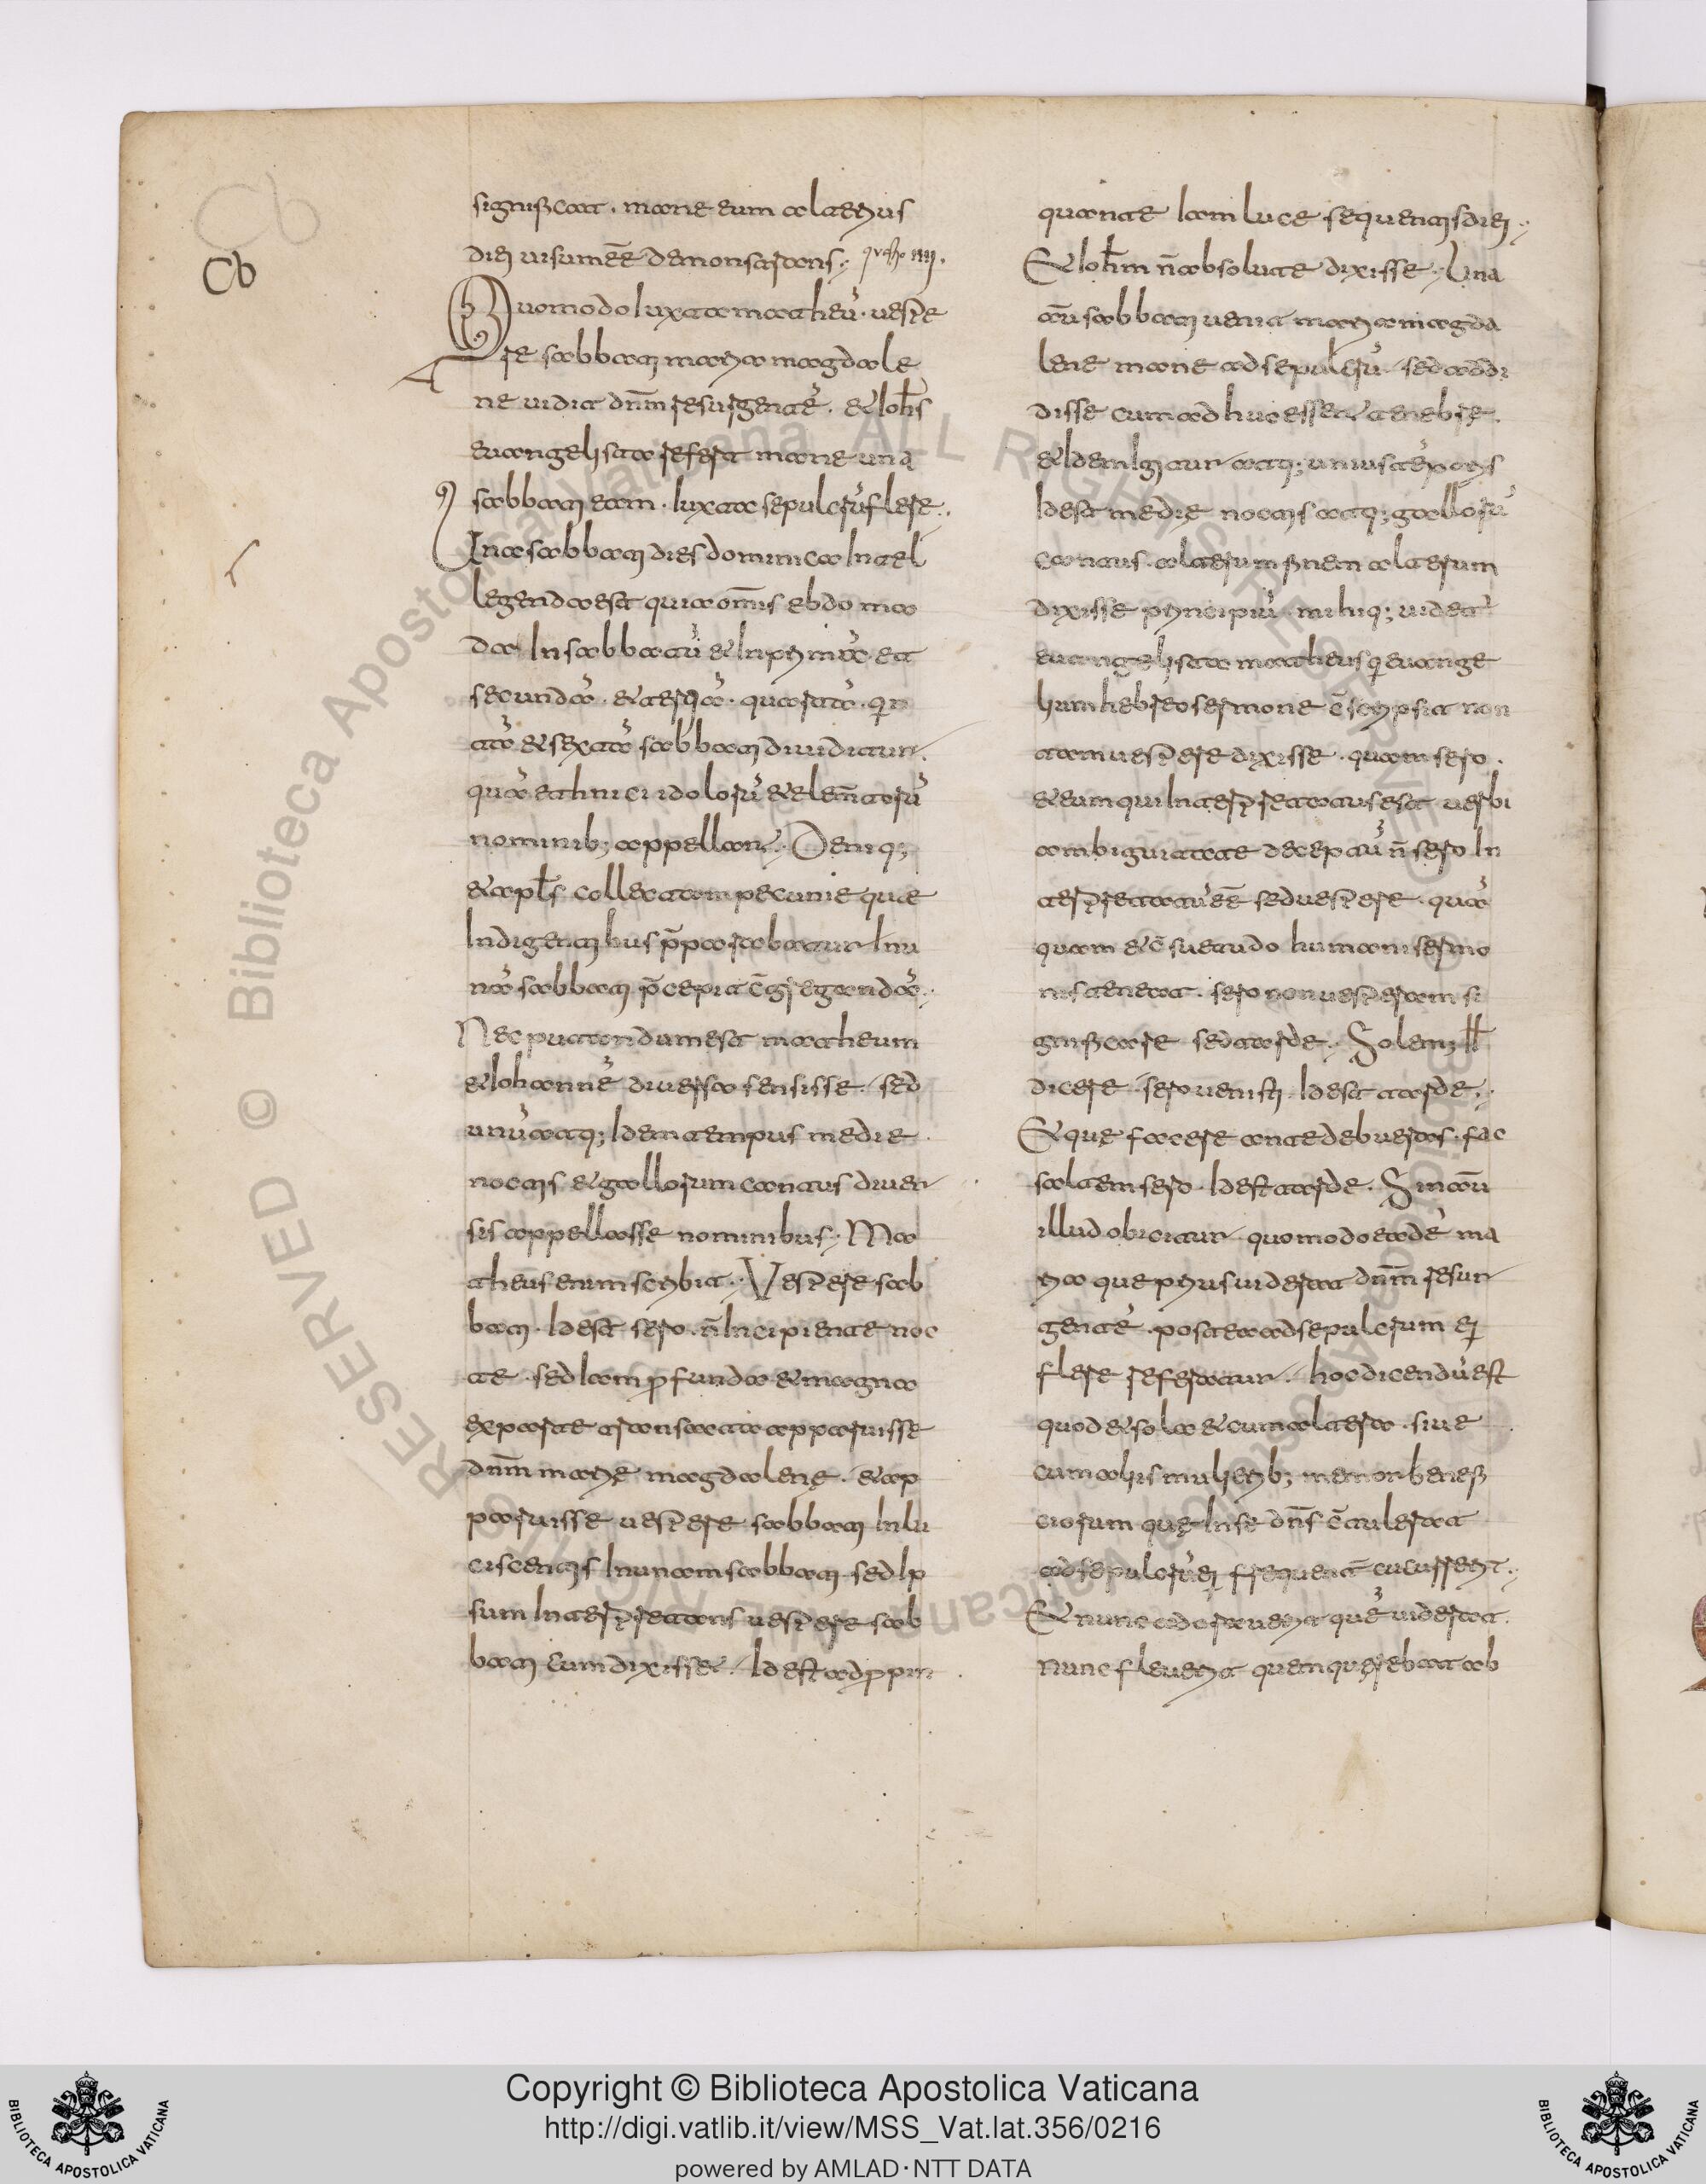 Cb
significat. mane eum alterius
diei uisum eē demonstrans. questio IIII.
Quomodo iuxta matheū. uespe
re sabbati maria magdale
ne uidit dn̄m resurgentē. & ioh̄s
euangelista refert mane una
sabbati eam. iuxta sepulcrū flere.
Una sabbati dies dominica intel
legenda est quia om̄is ebdoma
da in sabbatū & in primā et
secundā. & tertiā. quartā. quin
tā & sextā sabbati diuiditur
quā ethnici idolorū & elem̄torū
nominib; appellant. Deniq;
& apl̄s collectam pecunie que
indigentibus p̄parabatur in u
nā sabbati p̄cepit c̄gregandā.
Nec putandum est matheum
& iohannē diuersa sensisse. sed
unū atq; idem tempus medie
noctis & gallorum cantus diuer
sis appellasse nominibus. Ma
theus enim scribit. Uespere sab
bati. id est sero. n̄ incipiente noc
te. sed iam profunda & magna
ex parte transacta apparuisse
dn̄m marię magdalenę. & ap
paruisse uespere sabbati in lu
ciscentis in unam sabbati. sed ip
sum interpretans uespere sab
bati cum dixisset. id est adpropin
quante iam luce sequentis diei.
& ioh̄m n̄ absolute dixisse. Una
aū sabbati uenit maria magda
lene mane ad sepulcrū. sed addi
disse cum adhuc essent tenebrę.
& idem igitur atq; unius tēporis
id est medię noctis atq; gallorū
cantus. alterum finem alterum
dixisse principiū. mihiq; uidetur
euangelista matheus qui euange
lium hebreo sermone c̄scripsit non
tam uespere dixisse. quam sero.
& eum qui interpretatus est uerbi
ambiguitate deceptū n̄ sero in
terpretatū eē sed uespere. quā
quam & c̄suetudo humani sermo
nis teneat. sero non uesperam si
gnificare sed tarde. Solemus
dicere. sero uenisti. id est tarde.
& quę facere ante debueras. fac
saltem sero. id est tarde. Sin aū
illud obicitur quomodo eadē ma
ria que prius uiderat dn̄m resur
gentē. postea ad sepulcrum ei
flere referatur. hoc dicendū est
quod & sola & cum altera. siue
cum aliis mulierib; memor benefi
ciorum quę in se dn̄s c̄tulerat
ad sepulcrū ei frequent̄ cucurrerit.
& nunc adorauerit quē uiderat.
nunc fleuerit quem querebat ab